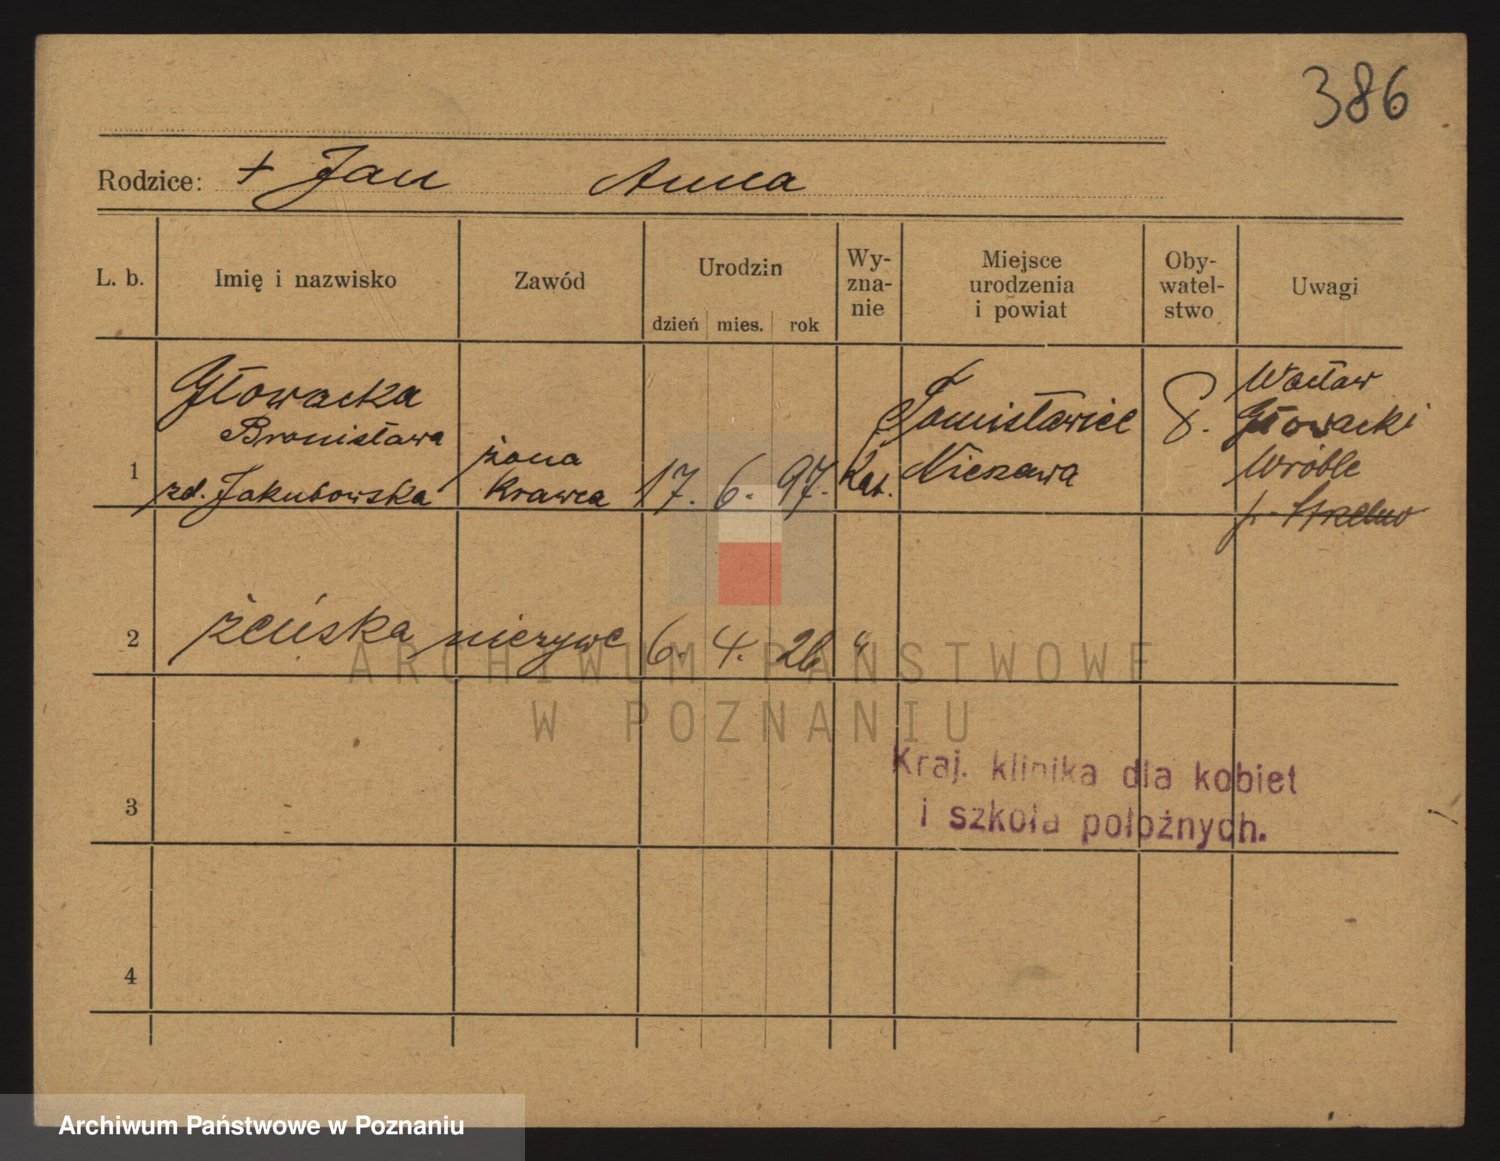 386
Rodzice: + Jan Anna
L. b. Imię i nazwisko Zawód Urodzin dzień mies. rok Wy-znanie Miejsce urodzenia i powiat Oby-watel-stwo Uwagi
1 Głowacka Bronisława zd. Jakubowska żona krawca 17. 6. 97. kat. Tomisławice Nieszawa Wacław Głowacki Wróble p. Strelno
2 żeńska nieżywe 6. 4. 26 "
3
4
Kraj. klinika dla kobiet
i szkoła położnych.
ARCHIWUM PAŃSTWOWE
W POZNANIU
Archiwum Państwowe w Poznaniu